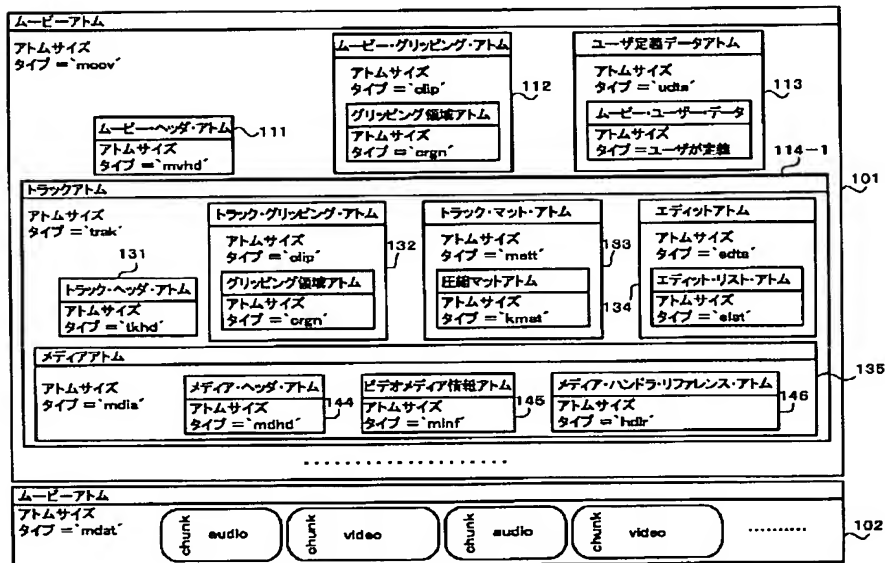 ムービーアトム
アトムサイズ
タイプ＝`moov'
ムービー・グリッピング・アトム
アトムサイズ
タイプ＝`clip'
グリッピング領域アトム
アトムサイズ
タイプ＝`crgn'
112
ユーザ定義データアトム
アトムサイズ
タイプ＝`udta'
ムービー・ユーザー・データ
アトムサイズ
タイプ＝ユーザが定義
113
ムービー・ヘッダ・アトム
アトムサイズ
タイプ＝`mvhd'
111
114-1
101
トラックアトム
アトムサイズ
タイプ＝`trak'
131
トラック・ヘッダ・アトム
アトムサイズ
タイプ＝`tkhd'
トラック・グリッピング・アトム
アトムサイズ
タイプ＝`clip'
グリッピング領域アトム
アトムサイズ
タイプ＝`crgn'
132
トラック・マット・アトム
アトムサイズ
タイプ＝`matt'
圧縮マットアトム
アトムサイズ
タイプ＝`kmat'
133
134
エディットアトム
アトムサイズ
タイプ＝`edts'
エディット・リスト・アトム
アトムサイズ
タイプ＝`elst'
メディアアトム
アトムサイズ
タイプ＝`mdia'
135
メディア・ヘッダ・アトム
アトムサイズ
タイプ＝`mdhd'
144
ビデオメディア情報アトム
アトムサイズ
タイプ＝`minf'
145
メディア・ハンドラ・リファレンス・アトム
アトムサイズ
タイプ＝`hdlr'
146
ムービーアトム
アトムサイズ
タイプ＝`mdat'
chunk audio
chunk video
chunk audio
chunk video
102